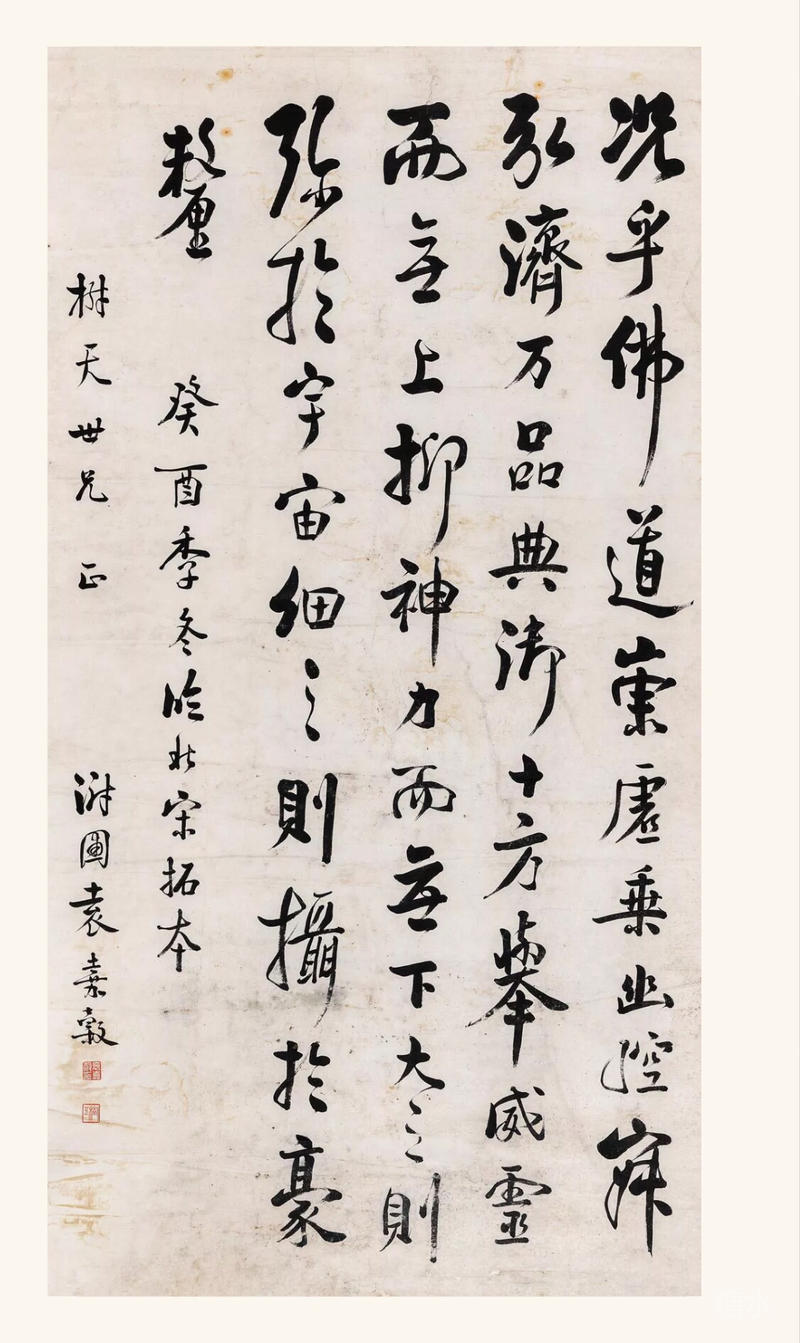 况乎佛道崇虛乗幽控寂
弘濟万品典御十方舉威靈
而無上抑神力而無下大之則
弥於宇宙細之則攝於豪
釐
癸酉季冬臨北宋拓本
樹天世兄 正
澍圃袁嘉穀